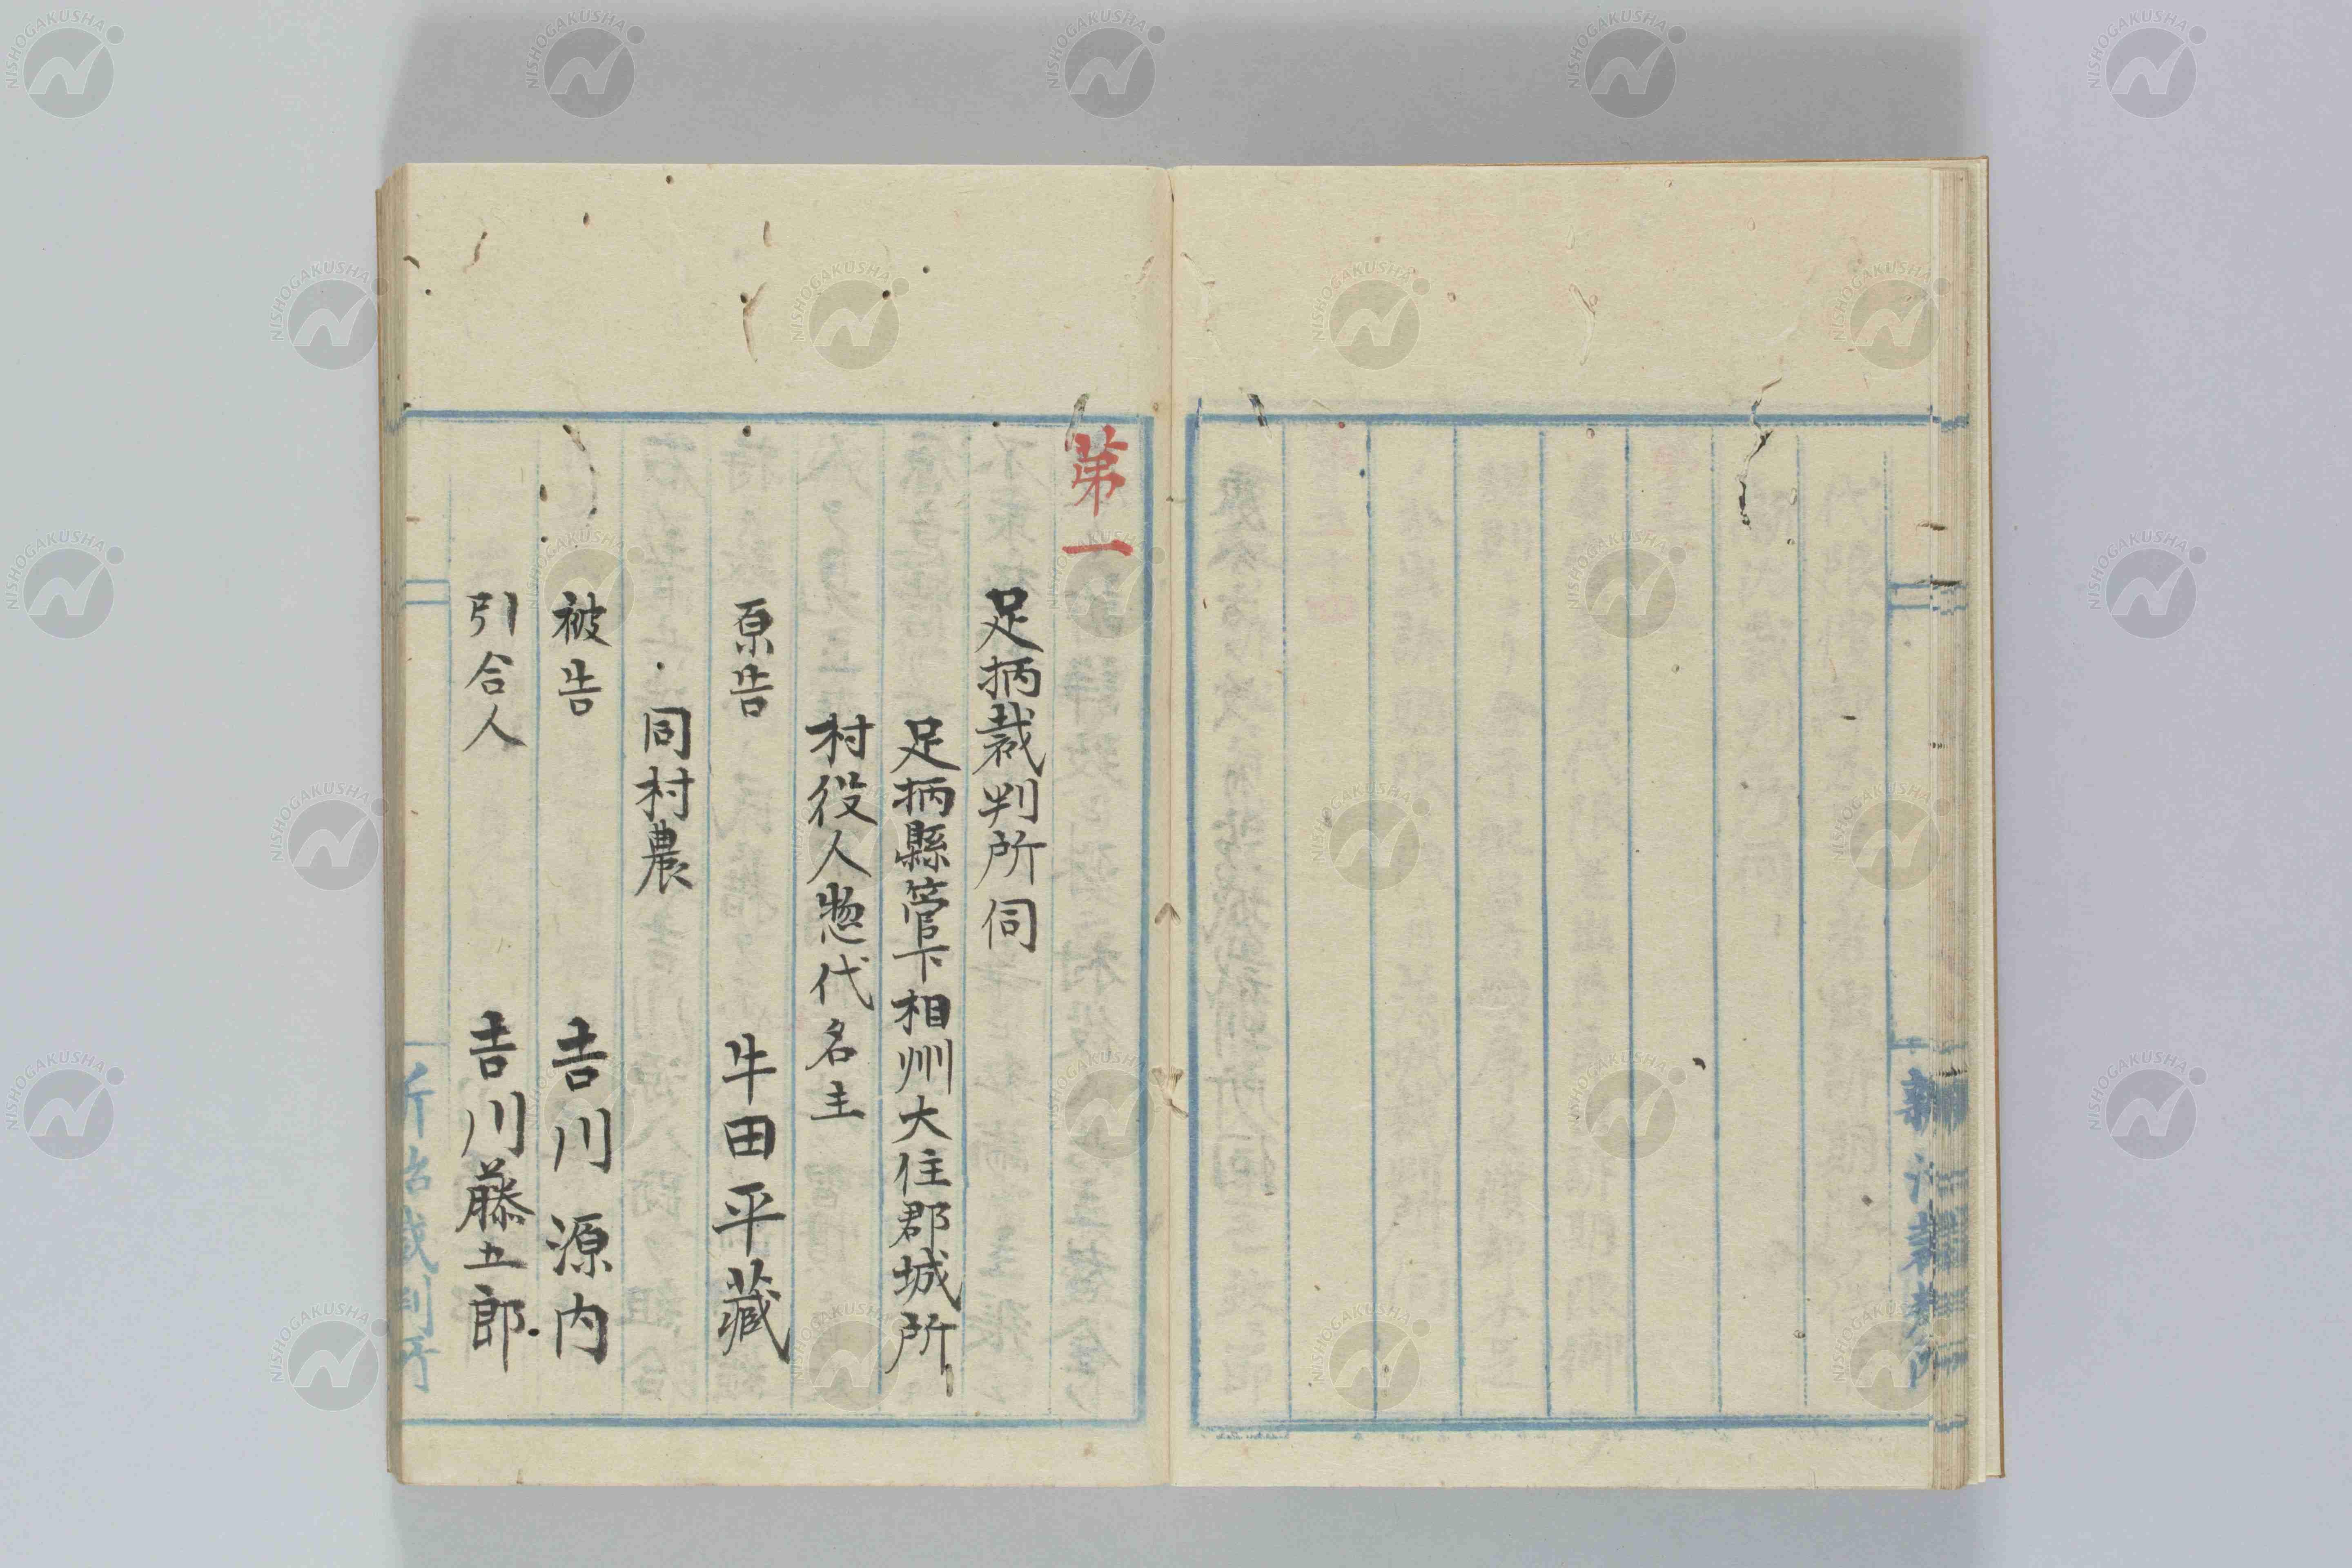 第一
足柄裁判所伺
足柄縣管下相州大住郡城所
村役人惣代名主
原告 牛田平藏
同村農
被告 吉川源内
引合人 吉川藤五郎
NISHOGAKUSHA